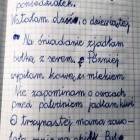 poniedziałek.
Wstałam dziś o dziewiątej
Na śniadanie zjadłam
bułkę z serem. Później
wypiłam kawę z mlekiem
Nie zapominam o owocach
przed południem jadłam kiwi
O trzynastej mama